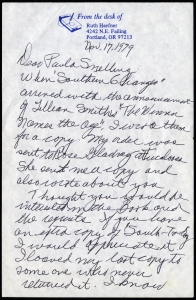 From the desk of
Ruth Haefner
4242 N.E. Failing
Portland, OR 97213
Nov. 17, 1979
Dear Paula Snelling
When Southern Changes
arrived with the announcement
of Lillian Smith's "The Winner
Names the Age", I wrote them
for a copy. My order was
sent to Rose Gladney
She sent me a copy and
also wrote about you.
Thought you would be
interested in the
the reprints. If you have
an extra copy of South Today
I would appreciate it
I loaned my last copy to
some one who never
returned it. I know